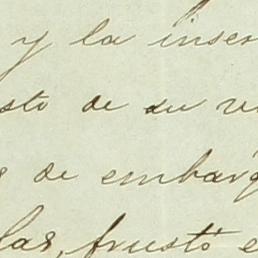 y la inser
sto de su v
s de embarg
las, frustó e